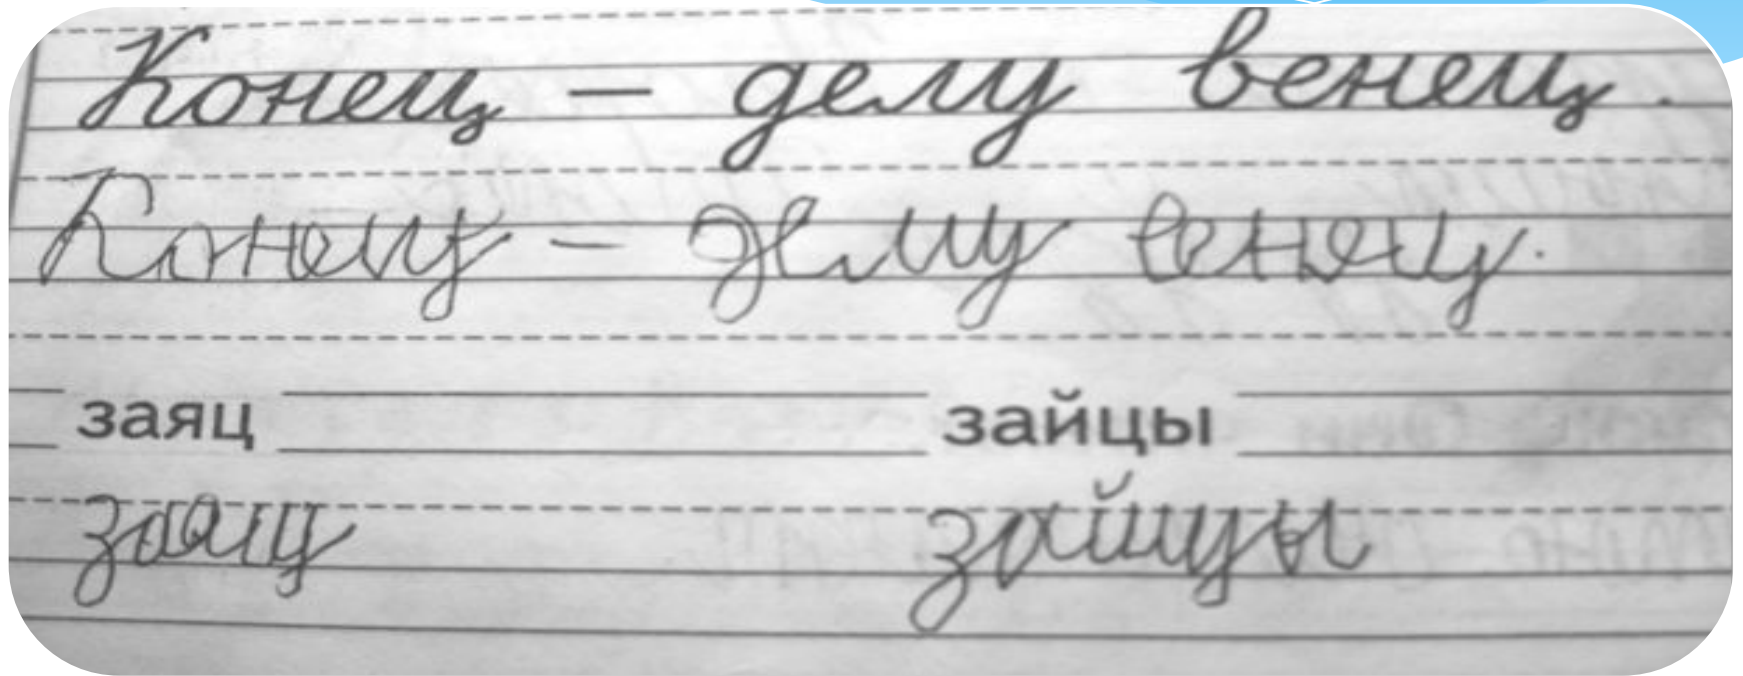 Конец — делу венец.
Конец — делу венец.
заяц зайцы
заяц зайцы